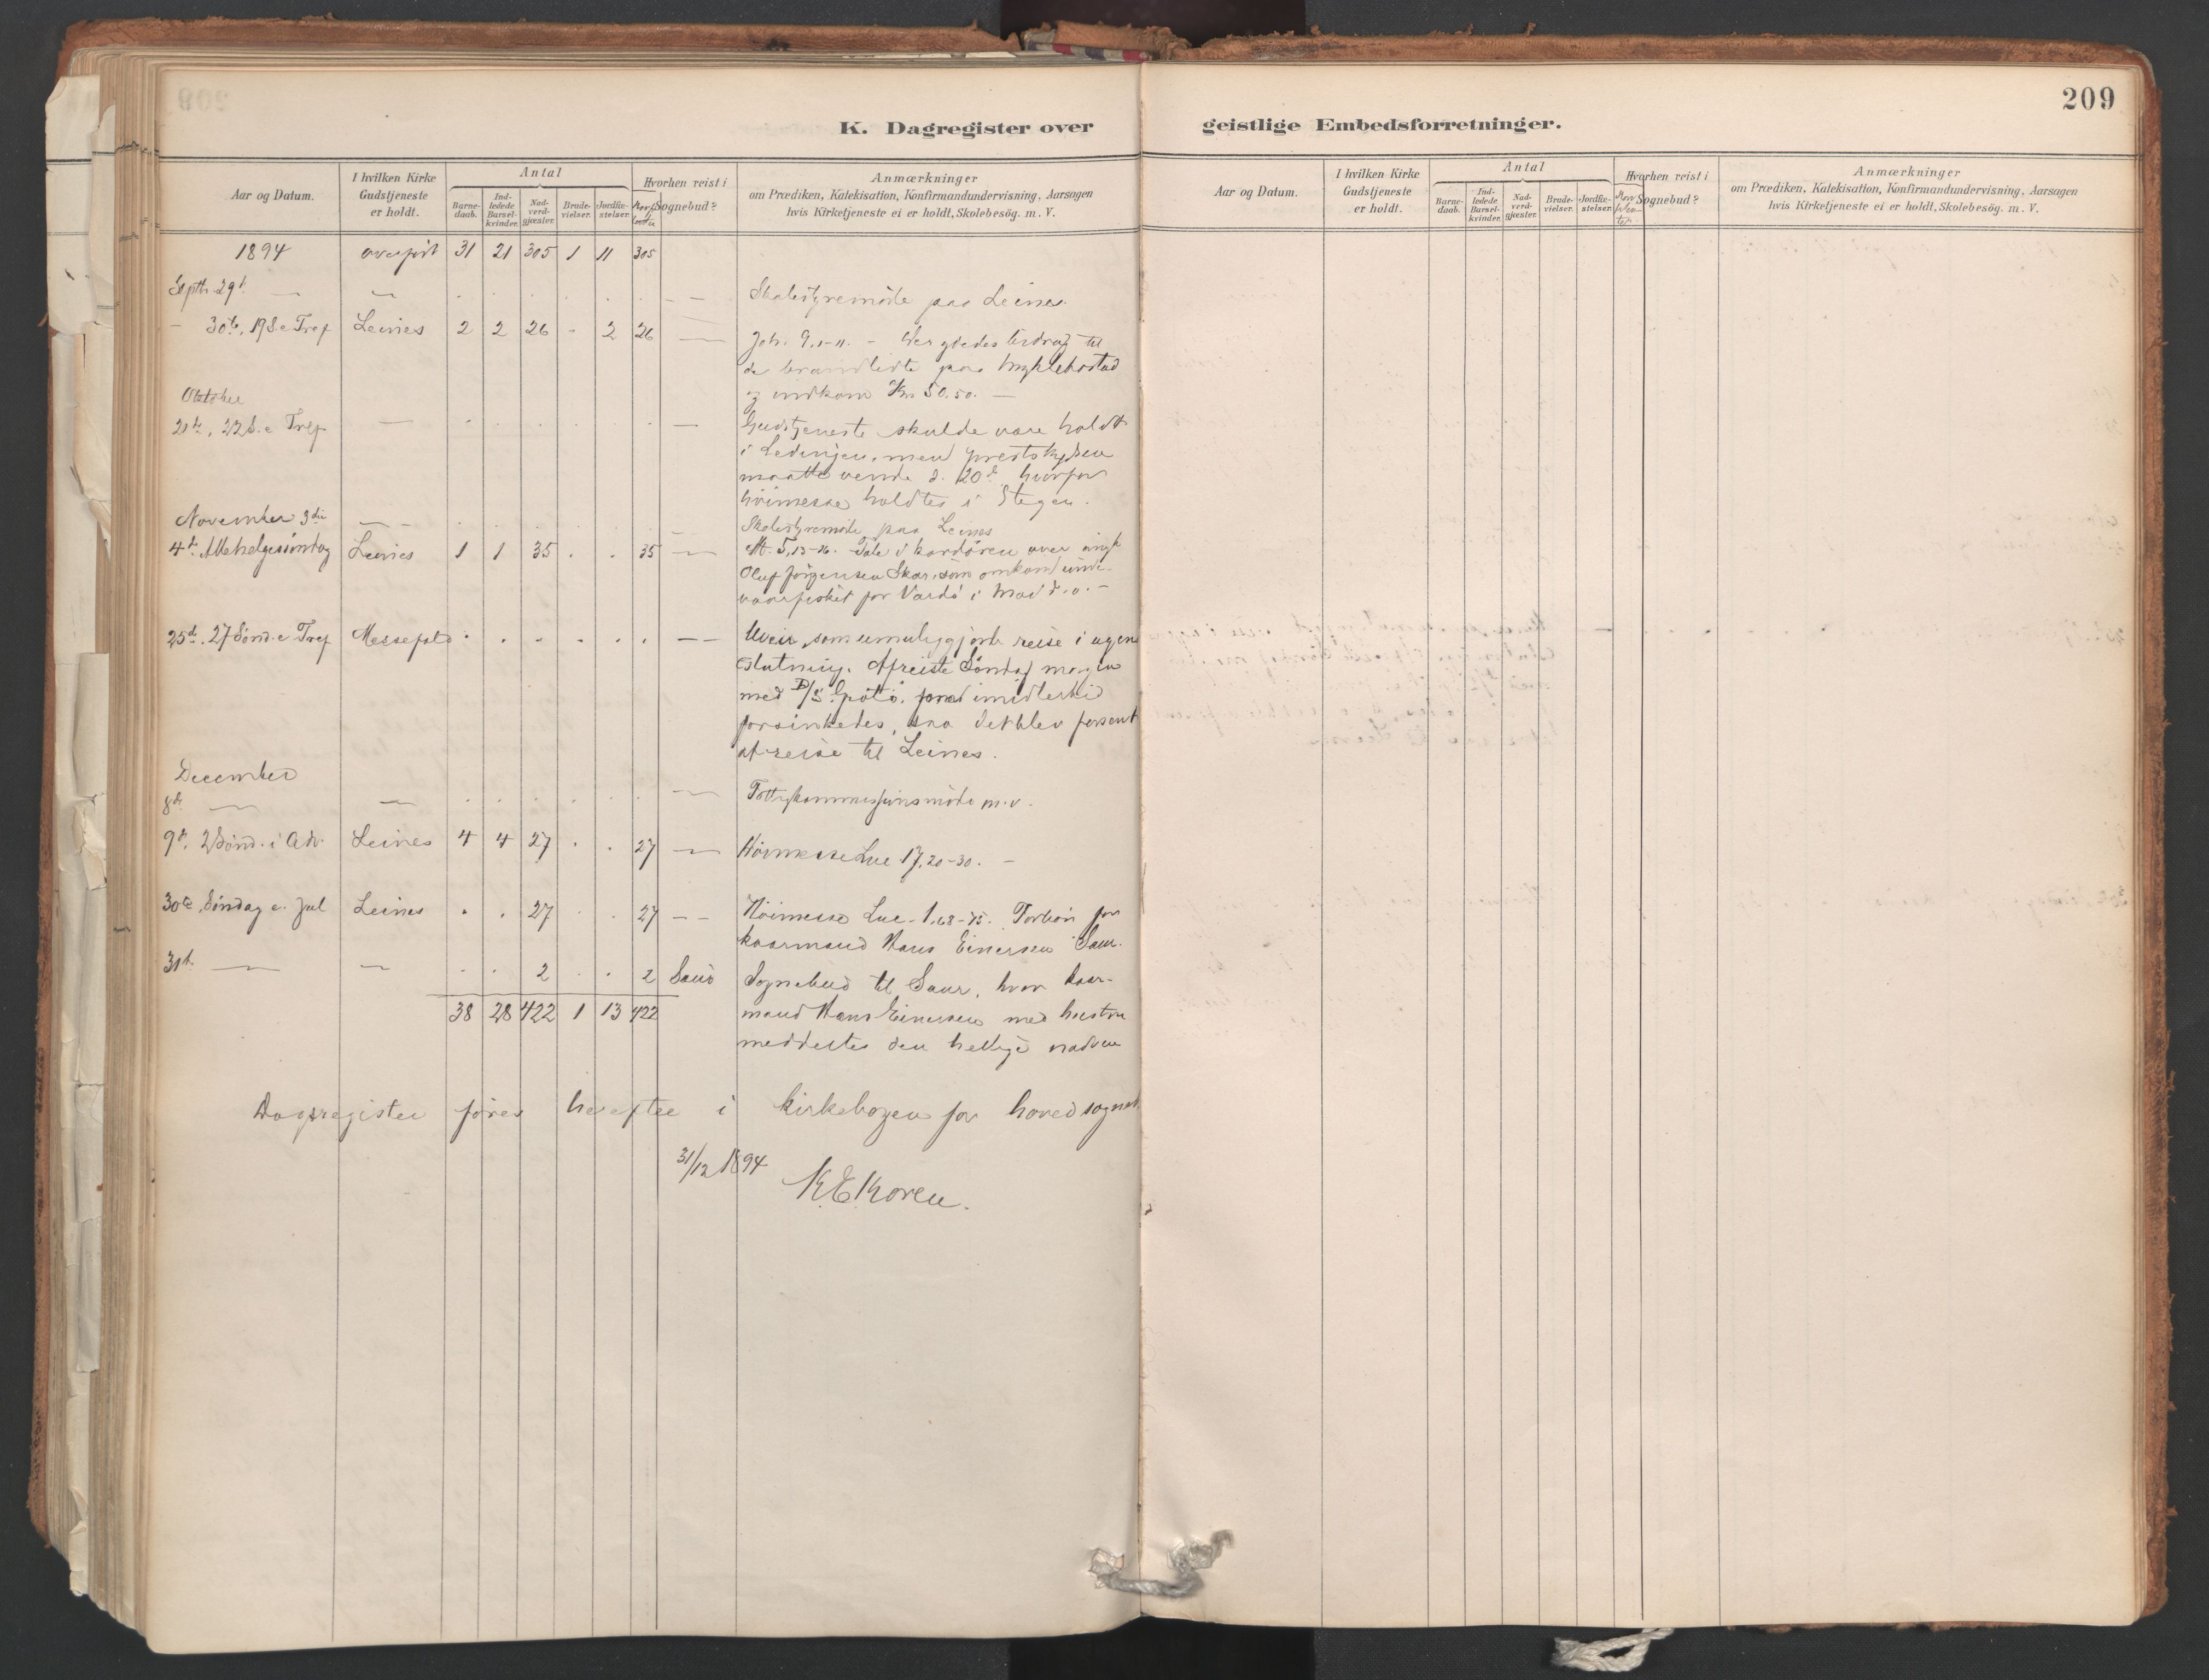 209
K. Dagregister over geistlige Embedsforretninger.
Aar og Datum.
I hvilken Kirke Gudstjeneste er holdt.
Antal
Barne-daab.
Ind-ledede Barsel-kvinder.
Nad-verd-gjester.
Brude-vielser.
Jordfæ-stelser.
Hvorhen reist i Sognebud?
Anmærkninger
om Prædiken, Katekisation, Konfirmandundervisning, Aarsagen
hvis Kirketjeneste ei er holdt, Skolebesög. m. V.
1894 overført 31 21 305 1 11 305
Septb. 29d. — — Skolestyremøde paa Leines.
— 30te, 19 S. e Tref Leines 2 2 26 - 2 26 — Joh. 9,1-11. -
de brandlidte paa
og indkom Kr 50.50. —
Oktober
21de, 22 S. e Tref — — Gudstjeneste skulde være holdt
i Ledingen, men
maatte vende d. 20d hvorfor
høimesse holdtes i Stegen.
November 3die — — Skolestyremøde paa Leines
4d. Allehelgessøndag Leines 1 1 35 . . 35 — Mt. 5,13-16. Tale i kordøren over
Oluf Jørgensen Skar, som omkom under
vaarfisket for Vardø i Mai d. a. —
25d. 27 Sønd. e Tref Messefold . . . . . . — Uveir, som umuliggjorde reise i ugens
Slutning. Afreiste Søndag morgen
med D/S. imidlertid
forsinkedes, saa det blev forsent
at reise til Leines.
December
8de — — — m.v.
9d. 2 Sønd. i Adv. Leines 4 4 27 . . 27 — Høimesse Luc 17,20-30. —
30te, Søndag e. Jul Leines . . 27 . . 27 — Høimesse Luc. 1,68-75. Forbøn for
kaarmand Hans Einersen Saur.
31te — — . . 2 . . 2 Saur Sognebud til Saur, hvor kaar-
38 28 422 1 13 422 mand Hans Einersen med hustru
meddeltes den hellige nadver
Dagregister føres herefter i kirkebogen for hovedsognet
31/12 1894
K. E. Koren.
Aar og Datum.
I hvilken Kirke Gudstjeneste er holdt.
Antal
Barne-daab.
Ind-ledede Barsel-kvinder.
Nad-verd-gjester.
Brude-vielser.
Jordfæ-stelser.
Hvorhen reist i Sognebud?
Anmærkninger
om Prædiken, Katekisation, Konfirmandundervisning, Aarsagen
hvis Kirketjeneste ei er holdt, Skolebesög. m. V.